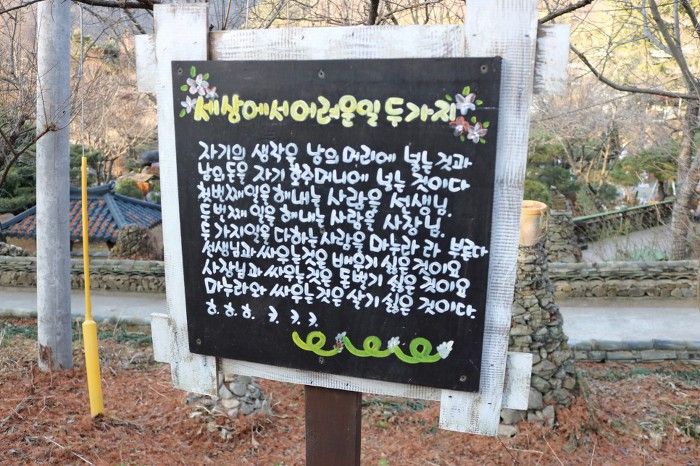 세상에서 어려운일 두가지
자기의 생각을 남의 머리에 넣는것과
남의돈을 자기 호주머니에 넣는 것이다
첫번째일을 해내는 사람을 선생님.
두번째일을 해내는 사람을 사장님.
두가지일을 다하는 사람을 마누라 라 부른다
선생님과 싸우는것은 배우기 싫은것이요
사장님과 싸우는것은 돈벌기 싫은 것이요
마누라와 싸우는것은 살기 싫은 것이다.
ㅎ.ㅎ.ㅎ ㅋ.ㅋ.ㅋ